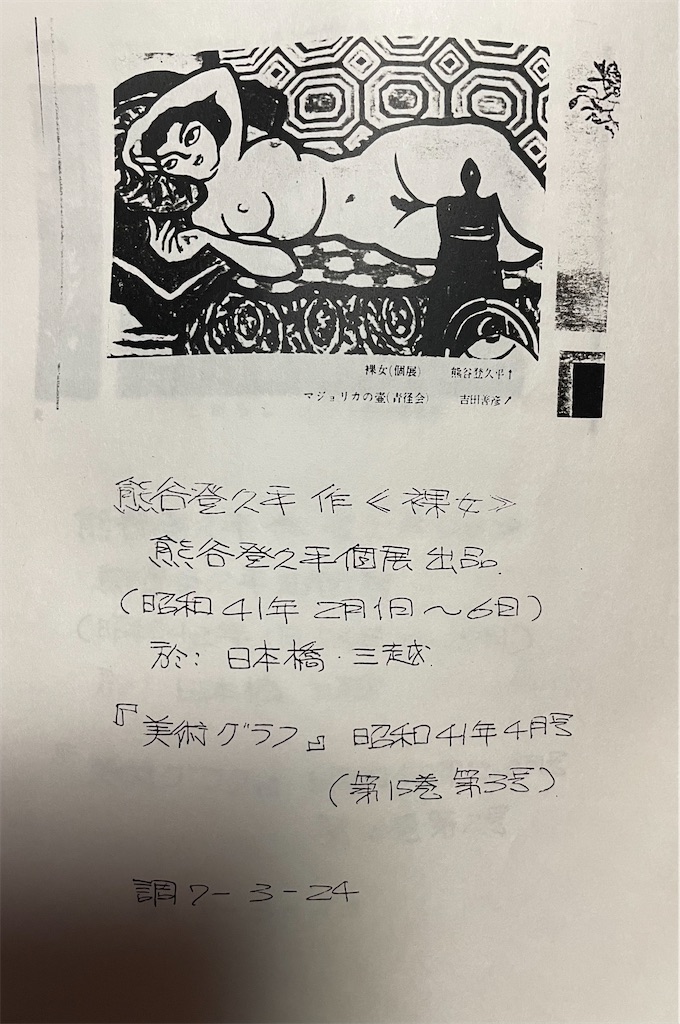 裸女(個展) 熊谷登久平↑
マジョリカの壷(青径会) 吉田善彦↗
熊谷登久平 作 《裸女》
熊谷登久平個展 出品。
(昭和41年 2月1日〜6日)
於: 日本橋・三越.
『美術グラフ』 昭和41年4月号
(第15巻 第3号)
調7-3-24